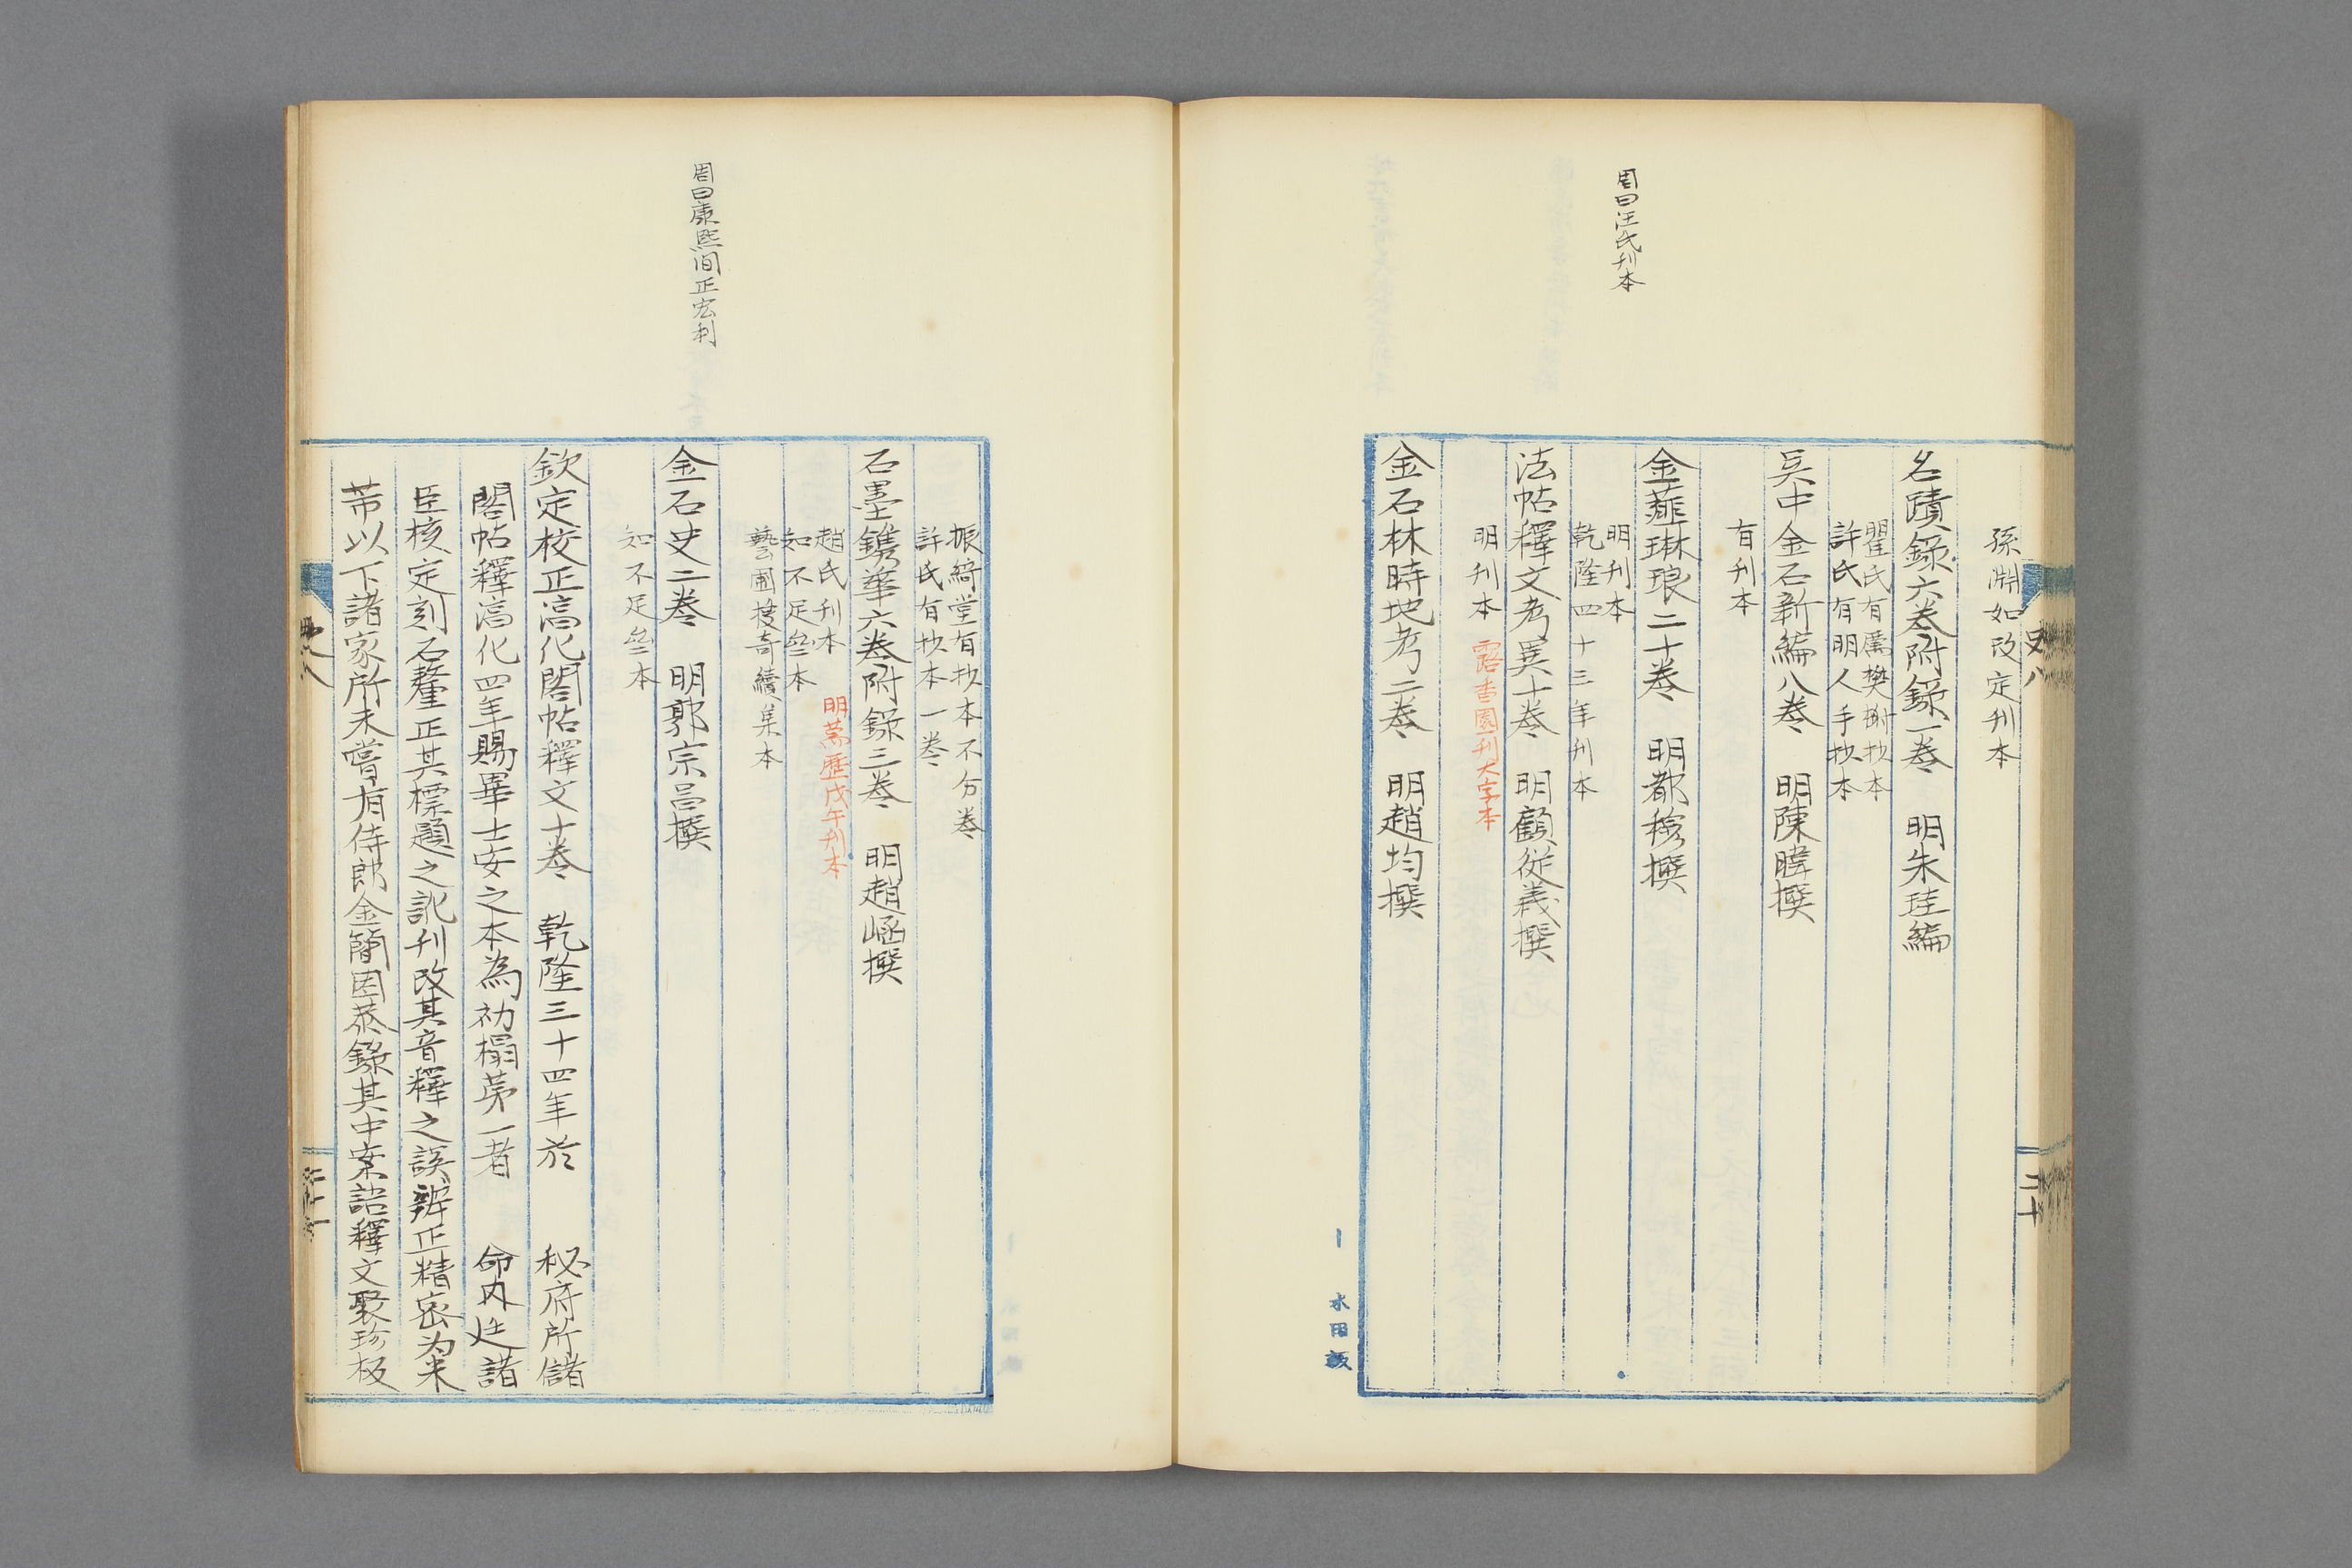 周曰汪氏刊本
孫淵如改定刊本
名蹟錄六卷附錄一卷 明朱珪編
瞿氏有舊樊榭抄本
許氏有明人手抄本
吳中金石新編八卷 明陳暐撰
有刊本
金薤琳琅二十卷 明都穆撰
明刊本
乾隆四十三年刊本
法帖釋文考異十卷 明顧從義撰
明刊本 露香園刊大字本
金石林時地考二卷 明趙均撰
史八
二十
水田版
周曰康熙间正宏刊
振綺堂有抄本不分卷
許氏有抄本一卷
石墨鐫華六卷附錄三卷 明趙崡撰
趙氏刊本 明萬歷戊午刊本
知不足叁本
藝圃搜奇續集本
金石史二卷 明郭宗昌撰
知不足叁本
欽定校正淳化閣帖釋文十卷 乾隆三十四年於 秘府所儲
閣帖釋淳化四年賜畢士安之本為初榻苐一者 命內廷諸
臣核定刻石釐正其標題之訛刊改其音釋之誤辨正精密为米
芾以下諸家所未嘗有侍郎金簡因恭錄其中案語釋文聚珍板